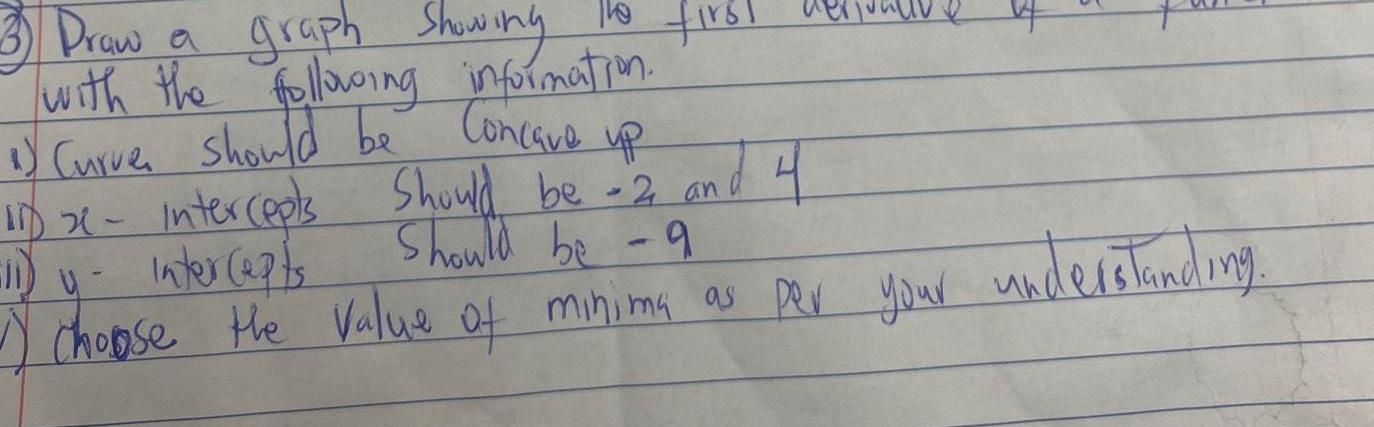 3) Draw a graph showing the first derivative of a
with the following information.
i) Curve should be Concave up
ii) x- intercepts Should be -2 and 4
iii) y- intercepts Should be -9
) Choose the value of minima as per your understanding.